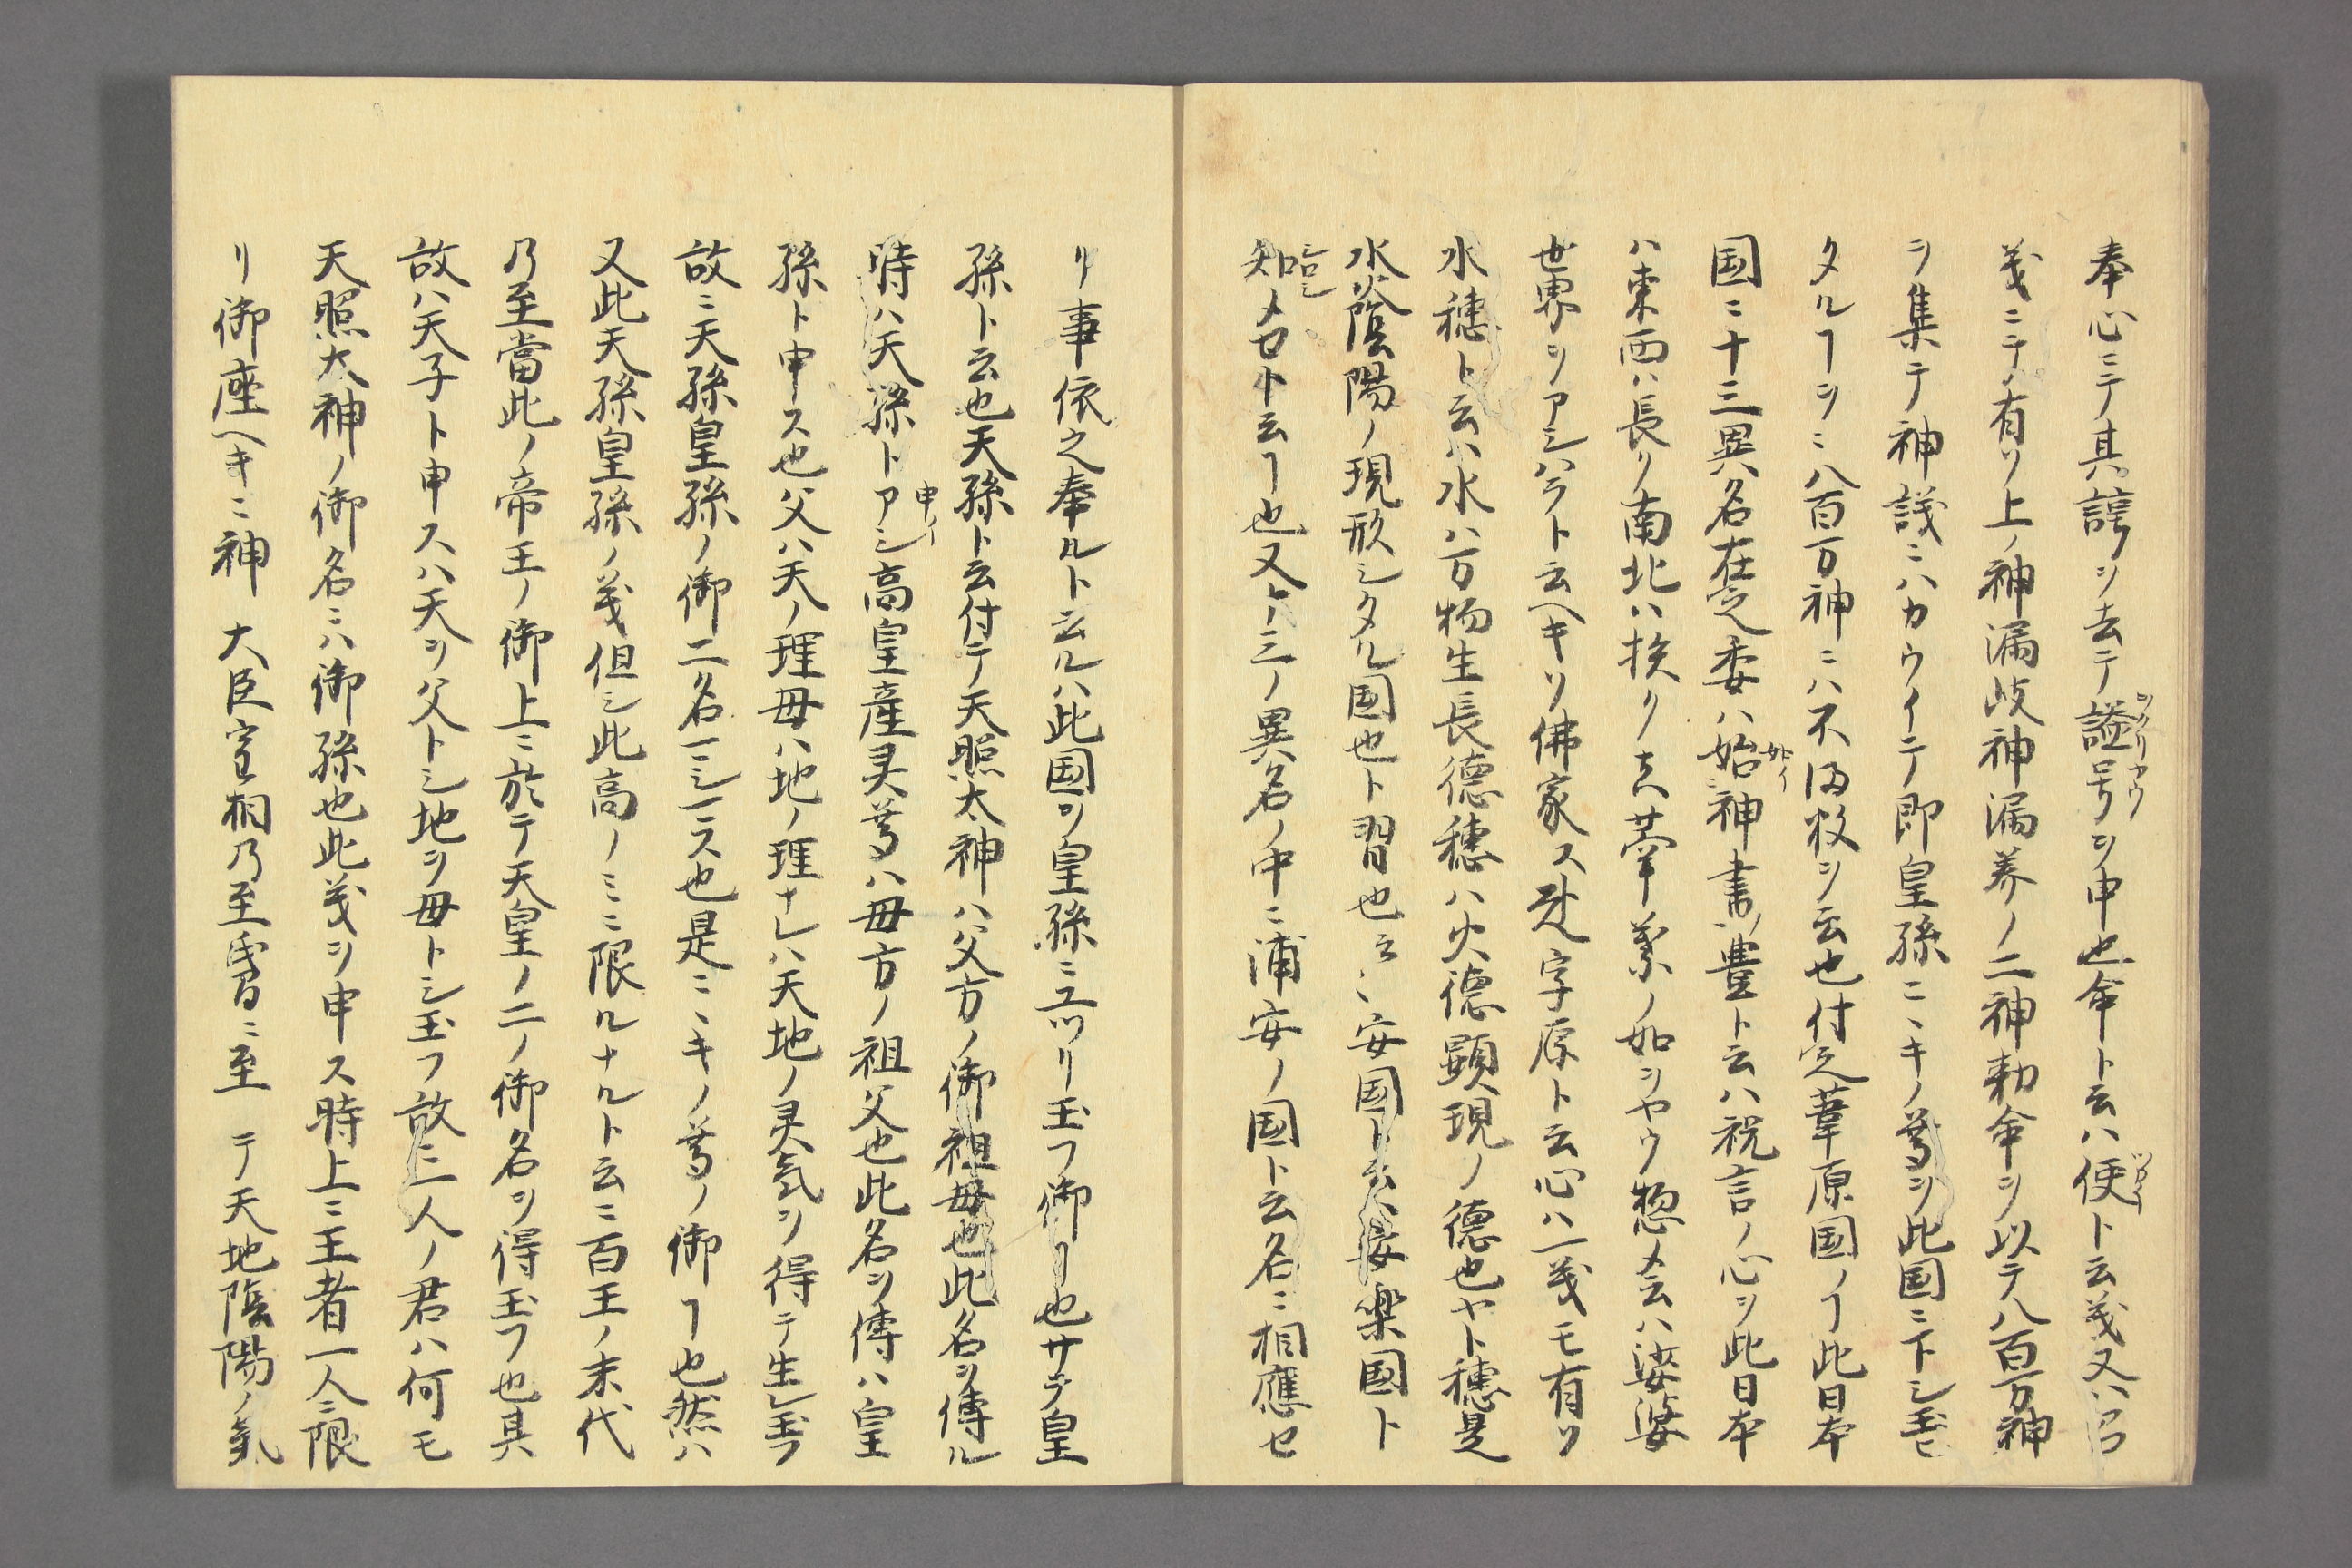 奉心ニテ其諱ヲ去テ謚号ヲ申也命ト云ハ使ト云義又ハ召
義ニテ有リ上ノ神漏岐神漏美ノ二神勅命ヲ以テ八百万神
ヲ集テ神議ニハカウイテ即皇孫ニヽキノ尊ヲ此国ニ下シ玉ヒ
タルヿヲ八百万神ニハ不及数ヲ云也付之葦原国ノヿ此日本
国ニ十三異名在之委ハ始神書ノ豊ト云ハ祝言ノ心ヲ此日本
ハ東西ハ長リ南北ハ挾ク真葦葉ノ如シヤウ惣メ云ハ娑婆
世界ヲアシハラト云ヘキソ佛家ス足字原ト云心ハ一義モ有リ
水穂ト云ハ水ハ万物生長徳穂ハ火徳顕現ノ徳也ヤト穂是
水火陰陽ノ現形シタル国也ト習也云々安国ト云ハ安楽国ト
知メセト云ヿ也又上ノ三ノ異名ノ中ニ浦安ノ国ト云名ニ相應セ
リ事依之奉ルト云ルハ此国ヲ皇孫ニユツリ玉フ御ヿ也サテ皇
孫ト云也天孫ト云付テ天照太神ハ父方ノ御祖母也此名ヲ傳ル
時ハ天孫トアシ高皇産灵尊ハ母方ノ祖父也此名ヲ傳ハ皇
孫ト申ス也父ハ天ノ理母ハ地ノ理ナレハ天地ノ灵気ヲ得テ生レ玉フ
故ニ天孫皇孫ノ御二名一シ一ス也是ニヽキノ尊ノ御ヿ也然ハ
又此天孫皇孫ノ義但シ此高ノミニ限ルナルト云ニ百王ノ末代
乃至當此ノ帝王ノ御上ニ於テ天皇ノ二ノ御名ヲ得玉フ也其
故ハ天子ト申スハ天ヲ父トシ地ヲ母トシ玉フ故ニ一人ノ君ハ何モ
天照太神ノ御名ニハ御孫也此義ヲ申ス時上ニ王者一人ニ限
リ御座ヘキニ神 大臣宰相乃至 ニ至 テ天地陰陽ノ氣